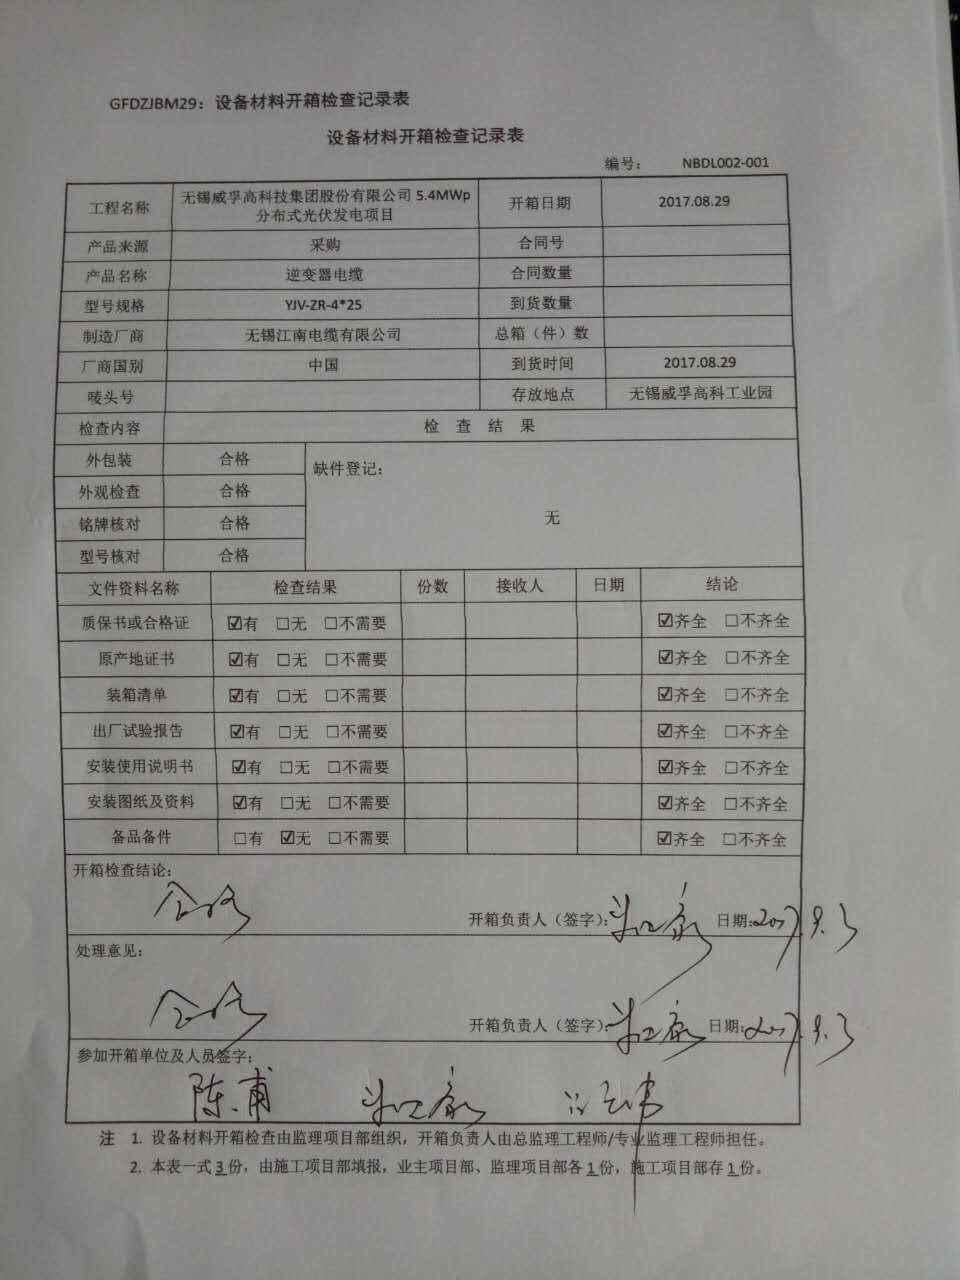 GFDZJBM29：设备材料开箱检查记录表
设备材料开箱检查记录表
编号： NBDL002-001
工程名称 无锡威孚高科技集团股份有限公司 5.4MWp 分布式光伏发电项目 开箱日期 2017.08.29
产品来源 采购 合同号
产品名称 逆变器电缆 合同数量
型号规格 YJV-ZR-4*25 到货数量
制造厂商 无锡江南电缆有限公司 总箱（件）数
厂商国别 中国 到货时间 2017.08.29
唛头号 存放地点 无锡威孚高科工业园
检查内容 检 查 结 果
外包装 合格 缺件登记：
外观检查 合格
铭牌核对 合格 无
型号核对 合格
文件资料名称 检查结果 份数 接收人 日期 结论
质保书或合格证 ☑有 □无 □不需要 ☑齐全 □不齐全
原产地证书 ☑有 □无 □不需要 ☑齐全 □不齐全
装箱清单 ☑有 □无 □不需要 ☑齐全 □不齐全
出厂试验报告 ☑有 □无 □不需要 ☑齐全 □不齐全
安装使用说明书 ☑有 □无 □不需要 ☑齐全 □不齐全
安装图纸及资料 ☑有 □无 □不需要 ☑齐全 □不齐全
备品备件 □有 ☑无 □不需要 ☑齐全 □不齐全
开箱检查结论：
合格
开箱负责人（签字）： 日期：2017.8.3
处理意见：
合格
开箱负责人（签字）： 日期：2017.8.3
参加开箱单位及人员签字：
陈甫
注 1. 设备材料开箱检查由监理项目部组织，开箱负责人由总监理工程师/专业监理工程师担任。
2. 本表一式 3 份，由施工项目部填报，业主项目部、监理项目部各 1 份，施工项目部存 1 份。